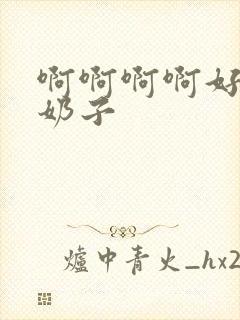 啊啊啊啊好
奶子
爐中青火_hx2